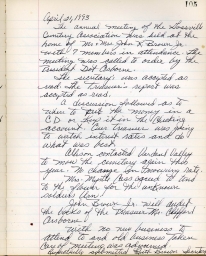 105
April 21, 1993
The annual meeting of the
Cemetery Association was held at the
home of Mr & Mrs John H. Brown Jr.
with 7 members in attendance. The
meeting was called to order by the
President Dot Osborne.
The secretary was accepted as
read. The Treasurer's report was
accepted as read.
A discussion followed as to
when to put the money in a
CD or leave it in the Checking
account. Our treasurer was going
to check interest rates and do
what was best.
Allison contacted Verdant Valley
to mow the cemetery again this
year. No change for mowing rate.
Mrs. Myrtle agreed to tend
to the flower for the unknown
soldiers
John Brown Jr. will audit
the books of the treasurer Mr. Clifford
Osborne.
With no new business to
attend to and old business taken
care of meeting was adjourned.
Respectfully submitted Ruth Brown Secretary